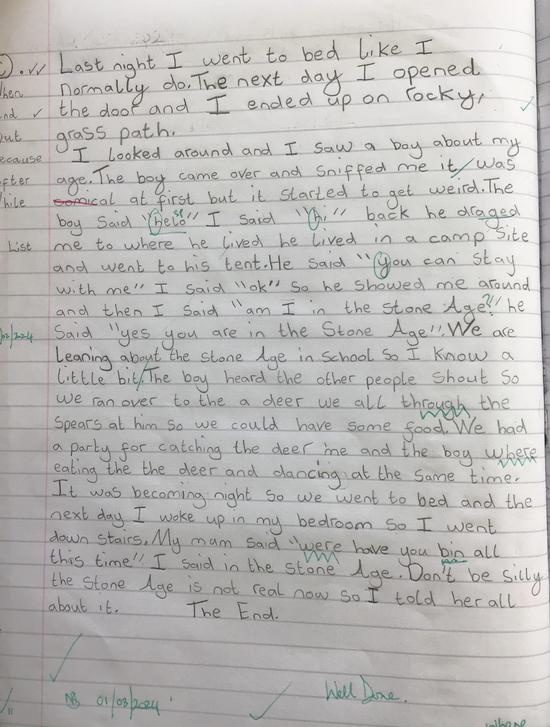 C). ✓✓ Last night I went to bed like I
hen normally do. The next day I opened
nd ✓ the door and I ended up on rocky,
ut grass path.
ecause I looked around and I saw a boy about my
fter age. The boy came over and sniffed me it was
hile comical at first but it started to get weird. The
boy said "helo" I said "hi" back he draged
List me to where he lived he lived in a camp site
and went to his tent. He said "you can stay
with me" I said "ok" so he showed me around
and then I said "am I in the stone Age?!" he
02/2024 Said "yes you are in the Stone Age". We are
Leaning about the Stone Age in School so I know a
little bit. The boy heard the other people shout so
we ran over to the a deer we all through the
spears at him so we could have some food. We had
a party for catching the deer me and the boy where
eating the the deer and dancing at the same time.
It was becoming night so we went to bed and the
next day I woke up in my bedroom so I went
down stairs. My mum said "were have you bin all
this time" I said in the stone Age. Don't be silly
the stone Age is not real now so I told her all
about it. The End.
NB 01/03/2024 Well Done.